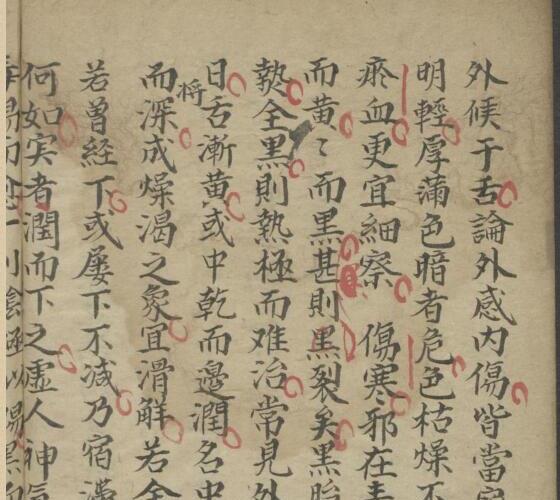 外候于舌論外感内傷皆當
明輕厚薄色暗者危色枯燥不
瘀血更宜細察 傷寒邪在
而黄〻而黒甚則黒裂矣黒
熱全黒則熱極而难治常見外
日舌漸黄或中乾而邊潤名中
将
而深成燥渴之象宜滑解若全
若曽經下或屡下不减乃宿滞
何如实者潤而下之虚人神氣